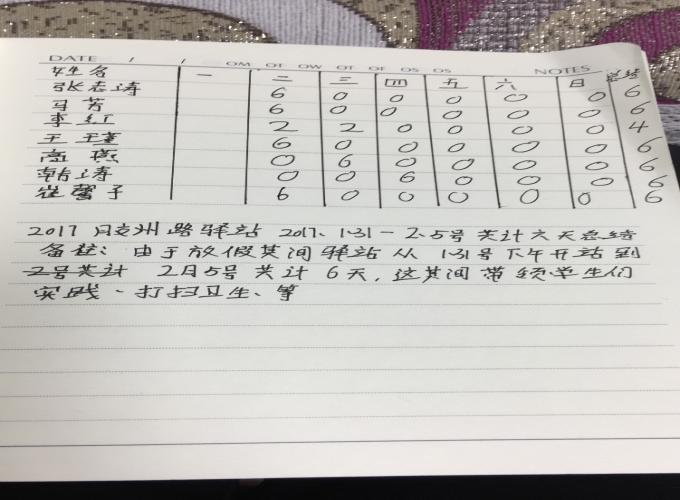 DATE / / OM OT OW OT OF OS OS NOTES
姓名 一 二 三 四 五 六 日 总结
张志涛 6 0 0 0 0 0 6
马芳 6 0 0 0 0 0 6
李红 2 2 0 0 0 0 4
王瑾 6 0 0 0 0 0 6
高燕 0 6 0 0 0 0 6
韩涛 0 0 6 0 0 0 6
崔馨予 6 0 0 0 0 0 6
2017 月支州路驿站 2017、1·31－2·5号 共计六天总结
备注：由于放假其间驿站从 1·31号下午开站到
2号共计 2月5号共计6天，这其间带领学生们
实践、打扫卫生、等